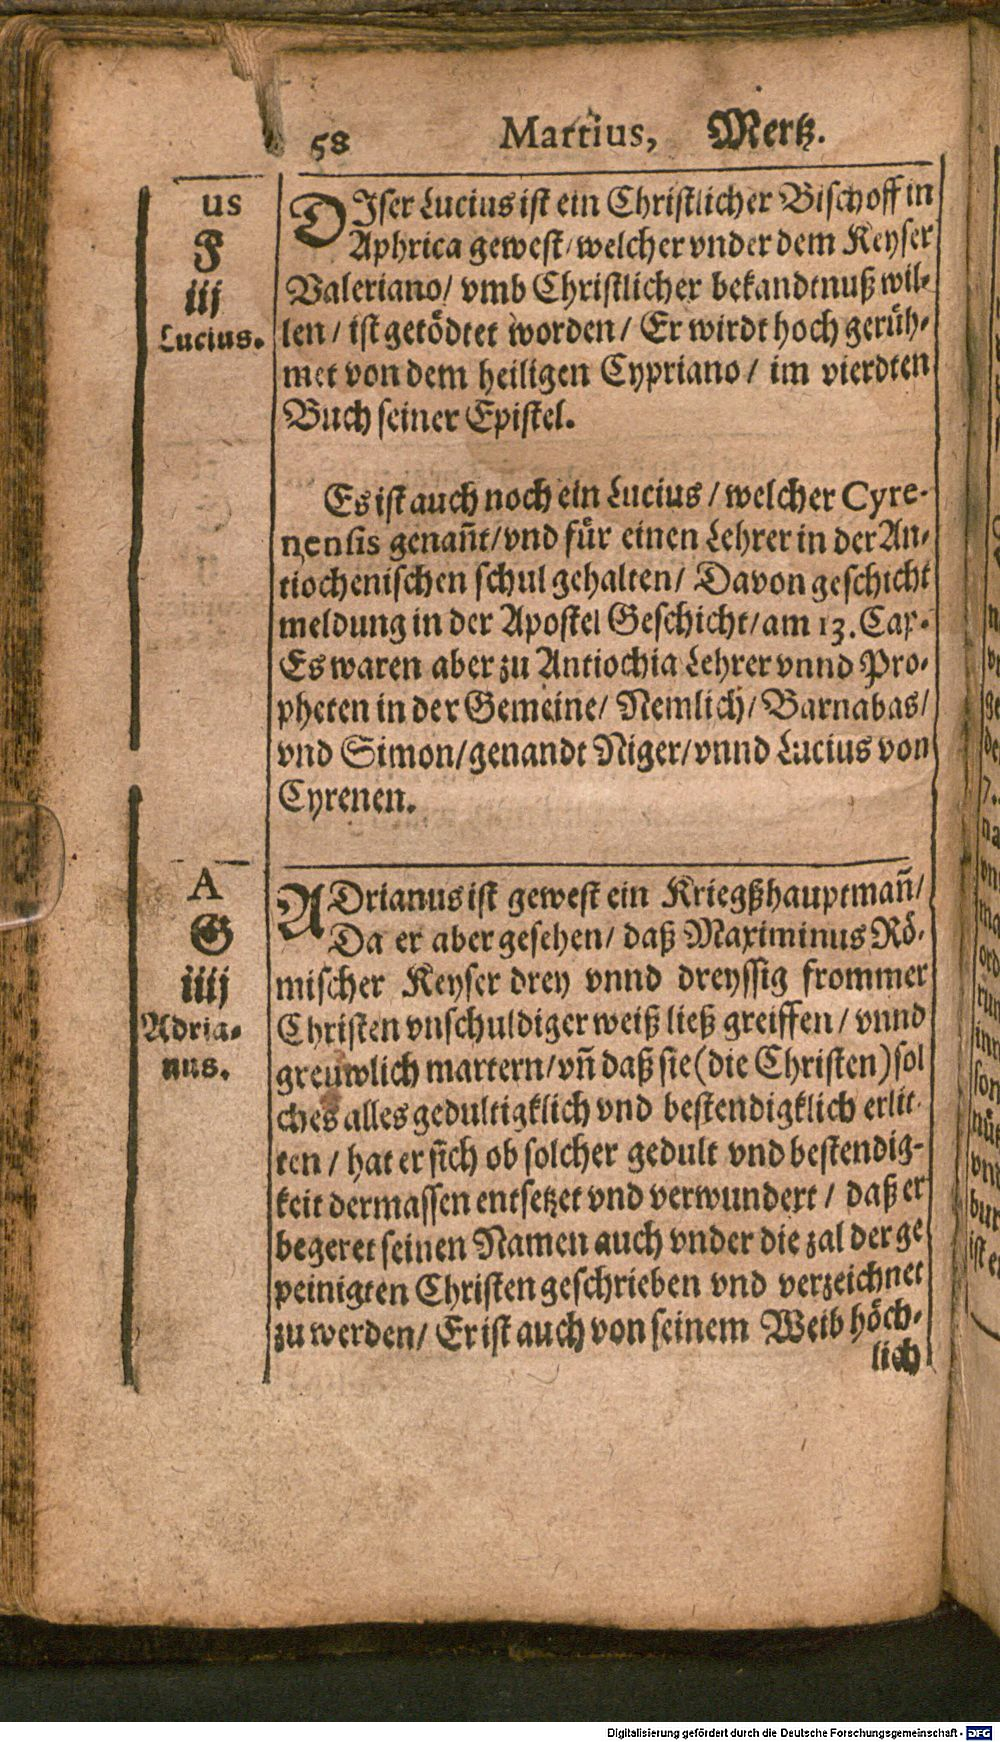 58 Martius, Mertz.
us
F
iij
Lucius.
DIser Lucius ist ein Christlicher Bischoff in
Aphrica gewest/ welcher vnder dem Keyser
Valeriano/ vmb Christlicher bekandtnuß wil-
len/ ist getödtet worden/ Er wirdt hoch gerüh-
met von dem heiligen Cypriano/ im vierdten
Buch seiner Epistel.
Es ist auch noch ein Lucius/ welcher Cyre-
nensis genañt/ vnd für einen Lehrer in der An-
tiochenischen schul gehalten/ Davon geschicht
meldung in der Apostel Geschicht/ am 13. Cap.
Es waren aber zu Antiochia Lehrer vnnd Pro-
pheten in der Gemeine/ Nemlich/ Barnabas/
vnd Simon/ genandt Niger/ vnnd Lucius von
Cyrenen.
A
G
iiij
Adria-
nus.
ADrianus ist gewest ein Kriegßhauptmañ/
Da er aber gesehen/ daß Maximinus Rö-
mischer Keyser drey vnnd dreyssig frommer
Christen vnschuldiger weiß ließ greiffen/ vnnd
greuwlich martern/ vñ daß sie (die Christen) sol
ches alles gedultigklich vnd bestendigklich erlit-
ten/ hat er sich ob solcher gedult vnd bestendig-
keit dermassen entsetzet vnd verwundert/ daß er
begeret seinen Namen auch vnder die zal der ge
peinigten Christen geschrieben vnd verzeichnet
zu werden/ Er ist auch von seinem Weib höch-
lich
Digitalisierung gefördert durch die Deutsche Forschungsgemeinschaft - DFG